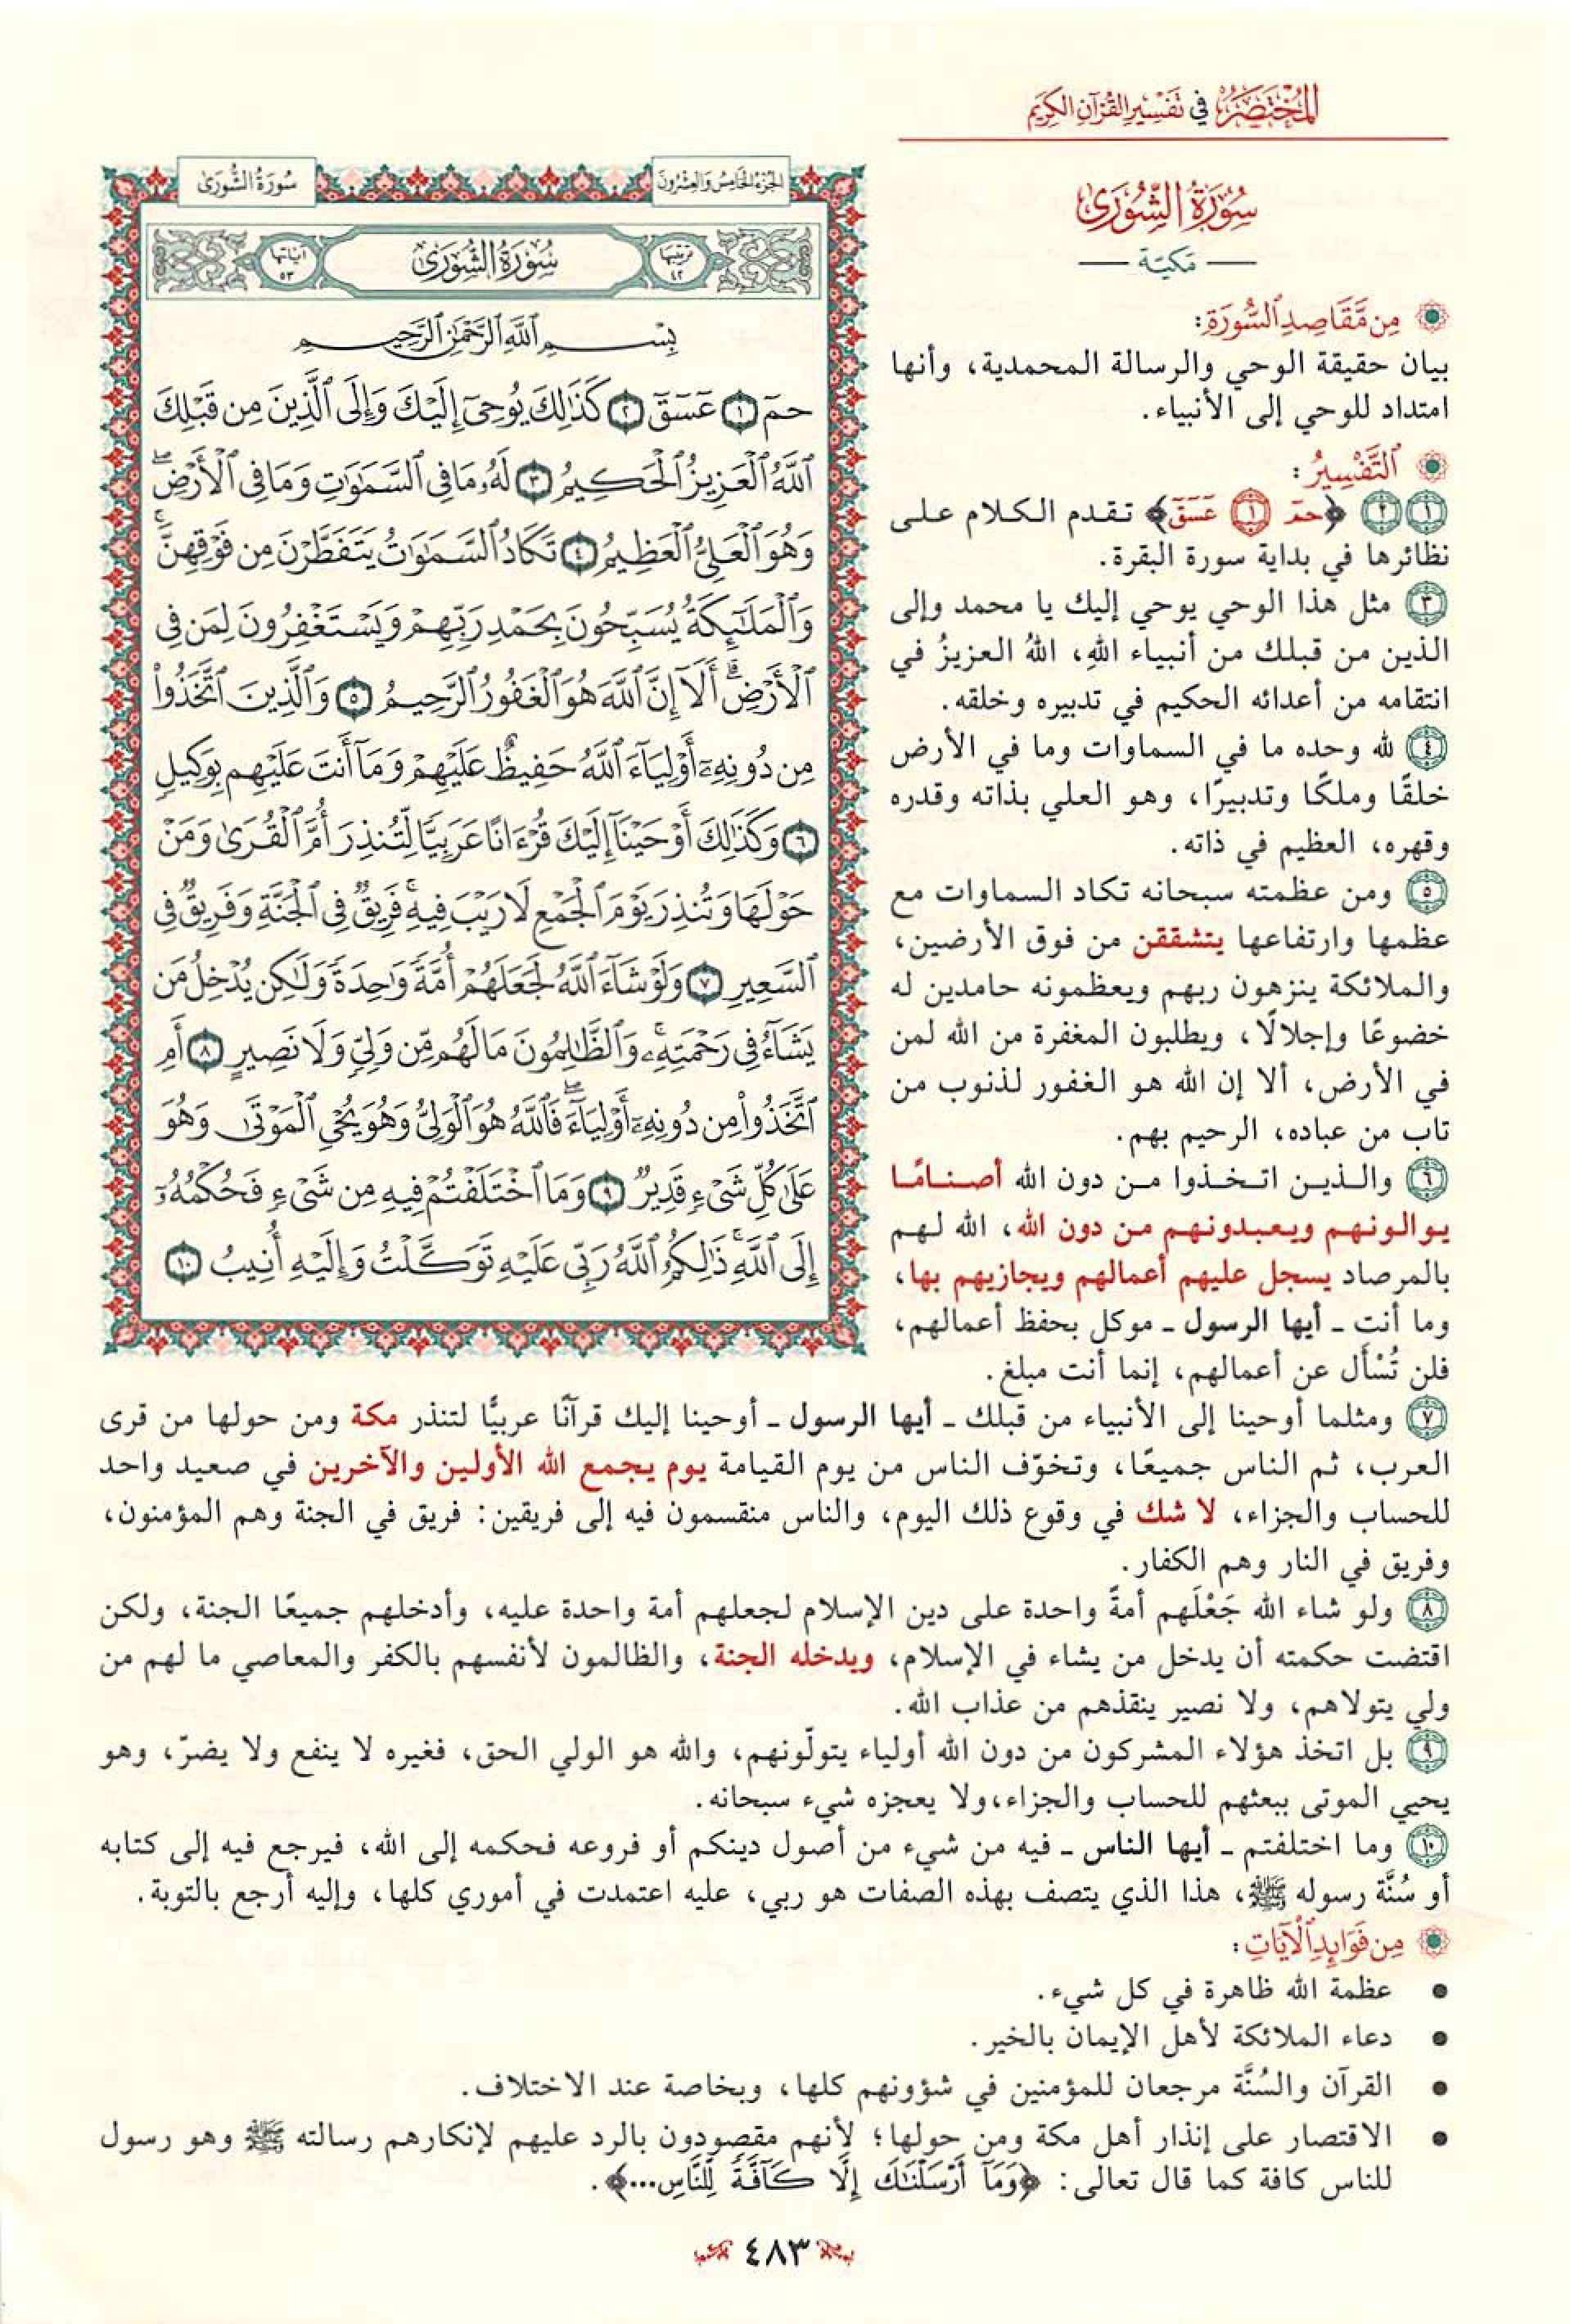 المُخْتَصَرُ فِي تَفْسِيرِ القُرْآنِ الكَرِيمِ
سُورَةُ الشُّورَىٰ
مَكيّة
مِن مَّقَاصِدِ ٱلسُّورَةِ:
بيان حقيقة الوحي والرسالة المحمدية، وأنها
امتداد للوحي إلى الأنبياء.
ٱلتَّفْسِيرُ:
١ ٢ ﴿حمٓ ١ عٓسٓقٓ﴾ تقدم الكلام على
نظائرها في بداية سورة البقرة.
٣ مثل هذا الوحي يوحي إليك يا محمد وإلى
الذين من قبلك من أنبياء اللهِ، اللهُ العزيزُ في
انتقامه من أعدائه الحكيم في تدبيره وخلقه.
٤ لله وحده ما في السماوات وما في الأرض
خلقًا وملكًا وتدبيرًا، وهو العلي بذاته وقدره
وقهره، العظيم في ذاته.
٥ ومن عظمته سبحانه تكاد السماوات مع
عظمها وارتفاعها يتشققن من فوق الأرضين،
والملائكة ينزهون ربهم ويعظمونه حامدين له
خضوعًا وإجلالًا، ويطلبون المغفرة من الله لمن
في الأرض، ألا إن الله هو الغفور لذنوب من
تاب من عباده، الرحيم بهم.
٦ والذين اتخذوا من دون الله أصنامًا
يوالونهم ويعبدونهم من دون الله، الله لهم
بالمرصاد يسجل عليهم أعمالهم ويجازيهم بها،
وما أنت ـ أيها الرسول ـ موكل بحفظ أعمالهم،
فلن تُسْأَل عن أعمالهم، إنما أنت مبلغ.
الجزء الخامس والعشرون
سُورَةُ الشُّورَىٰ
ترتيبها ٤٢
سُورَةُ الشُّورَىٰ
آياتها ٥٣
بِسْمِ ٱللَّهِ ٱلرَّحْمَٰنِ ٱلرَّحِيمِ
حمٓ ١ عٓسٓقٓ ٢ كَذَٰلِكَ يُوحِىٓ إِلَيْكَ وَإِلَى ٱلَّذِينَ مِن قَبْلِكَ
ٱللَّهُ ٱلْعَزِيزُ ٱلْحَكِيمُ ٣ لَهُۥ مَا فِى ٱلسَّمَٰوَٰتِ وَمَا فِى ٱلْأَرْضِۖ
وَهُوَ ٱلْعَلِىُّ ٱلْعَظِيمُ ٤ تَكَادُ ٱلسَّمَٰوَٰتُ يَتَفَطَّرْنَ مِن فَوْقِهِنَّۚ
وَٱلْمَلَٰٓئِكَةُ يُسَبِّحُونَ بِحَمْدِ رَبِّهِمْ وَيَسْتَغْفِرُونَ لِمَن فِى
ٱلْأَرْضِۗ أَلَآ إِنَّ ٱللَّهَ هُوَ ٱلْغَفُورُ ٱلرَّحِيمُ ٥ وَٱلَّذِينَ ٱتَّخَذُوا۟
مِن دُونِهِۦٓ أَوْلِيَآءَ ٱللَّهُ حَفِيظٌ عَلَيْهِمْ وَمَآ أَنتَ عَلَيْهِم بِوَكِيلٍ
٦ وَكَذَٰلِكَ أَوْحَيْنَآ إِلَيْكَ قُرْءَانًا عَرَبِيًّا لِّتُنذِرَ أُمَّ ٱلْقُرَىٰ وَمَنْ
حَوْلَهَا وَتُنذِرَ يَوْمَ ٱلْجَمْعِ لَا رَيْبَ فِيهِۚ فَرِيقٌ فِى ٱلْجَنَّةِ وَفَرِيقٌ فِى
ٱلسَّعِيرِ ٧ وَلَوْ شَآءَ ٱللَّهُ لَجَعَلَهُمْ أُمَّةً وَٰحِدَةً وَلَٰكِن يُدْخِلُ مَن
يَشَآءُ فِى رَحْمَتِهِۦۚ وَٱلظَّٰلِمُونَ مَا لَهُم مِّن وَلِىٍّ وَلَا نَصِيرٍ ٨ أَمِ
ٱتَّخَذُوا۟ مِن دُونِهِۦٓ أَوْلِيَآءَۖ فَٱللَّهُ هُوَ ٱلْوَلِىُّ وَهُوَ يُحْىِ ٱلْمَوْتَىٰ وَهُوَ
عَلَىٰ كُلِّ شَىْءٍ قَدِيرٌ ٩ وَمَا ٱخْتَلَفْتُمْ فِيهِ مِن شَىْءٍ فَحُكْمُهُۥٓ
إِلَى ٱللَّهِۚ ذَٰلِكُمُ ٱللَّهُ رَبِّى عَلَيْهِ تَوَكَّلْتُ وَإِلَيْهِ أُنِيبُ ١٠
٧ ومثلما أوحينا إلى الأنبياء من قبلك ـ أيها الرسول ـ أوحينا إليك قرآنًا عربيًّا لتنذر مكة ومن حولها من قرى
العرب، ثم الناس جميعًا، وتخوّف الناس من يوم القيامة يوم يجمع الله الأولين والآخرين في صعيد واحد
للحساب والجزاء، لا شك في وقوع ذلك اليوم، والناس منقسمون فيه إلى فريقين: فريق في الجنة وهم المؤمنون،
وفريق في النار وهم الكفار.
٨ ولو شاء الله جَعْلَهم أمةً واحدة على دين الإسلام لجعلهم أمة واحدة عليه، وأدخلهم جميعًا الجنة، ولكن
اقتضت حكمته أن يدخل من يشاء في الإسلام، ويدخله الجنة، والظالمون لأنفسهم بالكفر والمعاصي ما لهم من
ولي يتولاهم، ولا نصير ينقذهم من عذاب الله.
٩ بل اتخذ هؤلاء المشركون من دون الله أولياء يتولّونهم، والله هو الولي الحق، فغيره لا ينفع ولا يضرّ، وهو
يحيي الموتى ببعثهم للحساب والجزاء،ولا يعجزه شيء سبحانه.
١٠ وما اختلفتم ـ أيها الناس ـ فيه من شيء من أصول دينكم أو فروعه فحكمه إلى الله، فيرجع فيه إلى كتابه
أو سُنَّة رسوله ﷺ، هذا الذي يتصف بهذه الصفات هو ربي، عليه اعتمدت في أموري كلها، وإليه أرجع بالتوبة.
مِن فَوَائِدِ ٱلْآيَاتِ:
• عظمة الله ظاهرة في كل شيء.
• دعاء الملائكة لأهل الإيمان بالخير.
• القرآن والسُنَّة مرجعان للمؤمنين في شؤونهم كلها، وبخاصة عند الاختلاف.
• الاقتصار على إنذار أهل مكة ومن حولها؛ لأنهم مقصودون بالرد عليهم لإنكارهم رسالته ﷺ وهو رسول
للناس كافة كما قال تعالى: ﴿وَمَآ أَرْسَلْنَٰكَ إِلَّا كَآفَّةً لِّلنَّاسِ...﴾.
٤٨٣